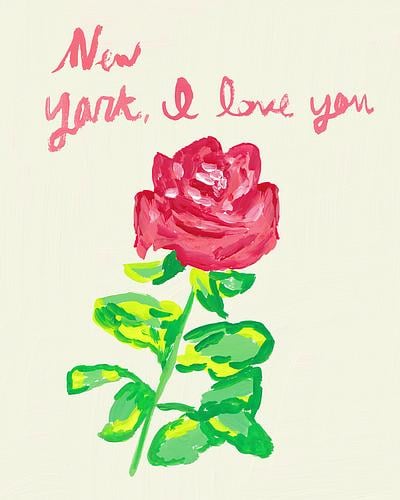 New
York, I love you